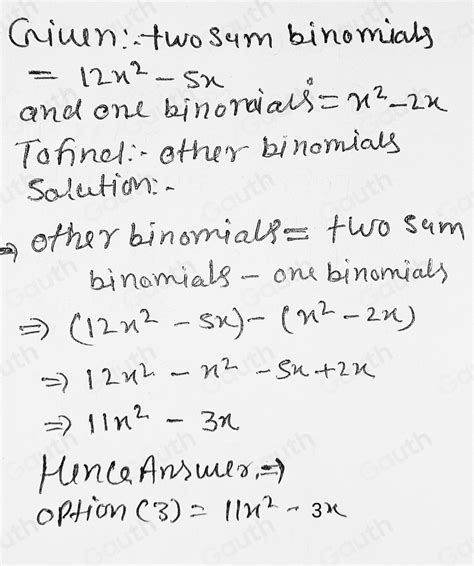 Given:- two sum binomials
= 12x² - 5x
and one binomials = x² - 2x
To find:- other binomials
Solution:-
⇒ other binomials = two sum
binomials - one binomials
⇒ (12x² - 5x) - (x² - 2x)
⇒ 12x² - x² - 5x + 2x
⇒ 11x² - 3x
Hence Answer, ⇒
option (3) = 11x² - 3x